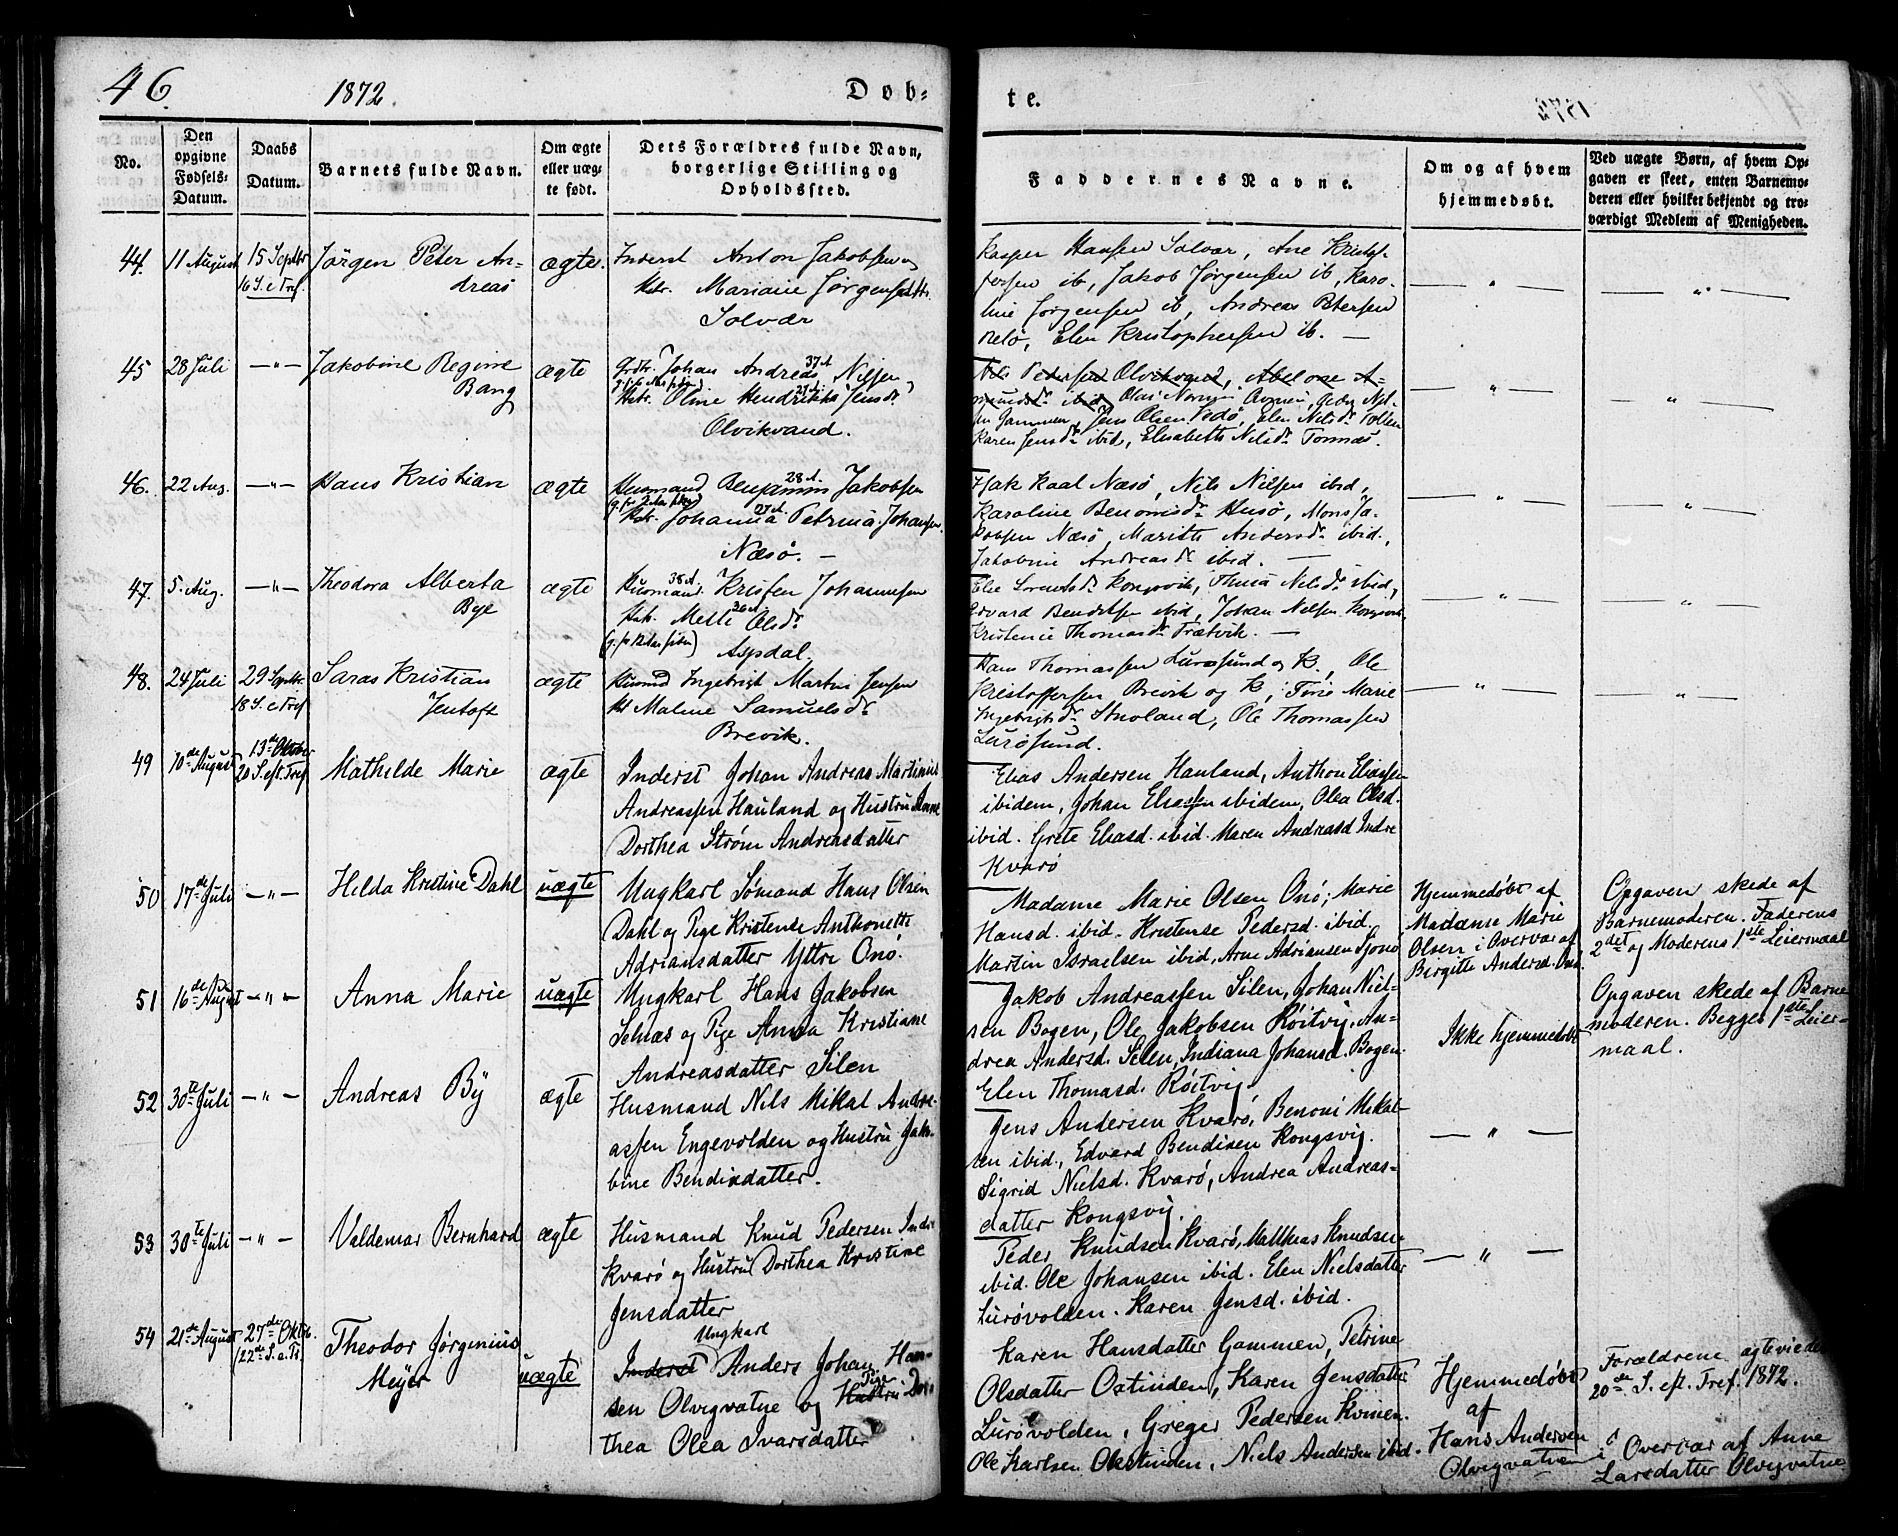 46
1872.
Døb-
te.
No.
Den opgivne Fødsels-Datum.
Daabs Datum.
Barnets fulde Navn.
Om ægte eller uægte født.
Dets Forældres fulde Navn, borgerlige Stilling og Opholdssted.
Faddernes Navne.
Om og af hvem hjemmedøbt.
Ved uægte Børn, af hvem Opgaven er skeet, enten Barnemoderen eller hvilket bekjendt og troværdigt Medlem af Menigheden.
44. 11 August 15 Septbr
16 S. e Tref.
Jörgen Peter An-
dreas
ægte.
Inderst Anton Jakobsen og
Hstr. Mariane Jørgensdtr.
Solvær
Kasper Hansen Solvær, Ane Kristof-
fersen ib, Jakob Jørgensen ib, Karo-
line Jørgensen ib, Andreas Petersen
Selö, Elen Kristophersen ib. —
— " —
— " —
45 28 Juli — " —
Jakobine Regine
Bang
ægte
Johan Andreas 37 A Nilsen
Hstr. Oline Hendrikka 27 A Jensdr
Olvikvand.
Nils Petersen Olvikvand, Abelone A-
mundsdr ibid,
Gammen, Jens Olsen Selö, Elen Nilsdr
Karen Jensdr ibid, Elisabeth Nilsdr Tonnæs.
— " —
— " —
46. 22 Aug. — " —
Hans Kristian
ægte
Husmand Benjamin 28 A. Jakobsen
Hstr. Johanna 27 A. Petrina Johansen
Næsø. —
Isak Kaal Næsø, Nils Nilsen ibid,
Karoline Benonisdr Husø, Mons Ja-
kobsen Næsø, Marith Andersdr ibid.,
Jakobine Andreasdr ibid. —
— " —
— " —
47. 5. Aug. — " —
Theodora Alberta
Bye
ægte
Husmand. 38 A. Kristen Johannesen
Hstr. Mette Olsdr
Aspdal.
Elie Lorentsdr Kongsvik, Thina Nilsdr ibid,
Edvard Bendiksen ibid, Johan Nilsen Kongsvik,
Kristence Thomasdr Trætvik. —
— " —
— " —
48. 24 Juli 29 Septbr.
18 S. e Tref
Saras Kristian
Jentoft
ægte
Husmd Ingebrigt Martin Jensen
Malene Samuelsdr
Brevik.
Hans Thomassen Lurøsund og K., Ole
Kristoffersen Brevik og K, Tine Marie
Ingebrigtsdr Stuoland, Ole Thomassen
Lurøsund.
— " —
— " —
49 10de August 13de Oktober
20 S. eft. Tref
Mathilde Marie
ægte
Inderst Johan Andreas Martinus
Andreassen Hauland og Hustru Anne
Dorthea Strøm Andreasdatter
Elias Andersen Hauland, Anthon Eliassen
ibidem, Johan Eliassen ibidem, Olea Olsd.
ibid. Grete Eliasd. ibid. Maren Andreasd Indre
Kvarø
50 17de Juli — " —
Hilda Kristine Dahl
uægte
Ungkarl Sømand Hans Olsen
Dahl og Pige Kristense Anthonette
Adriansdatter Yttre Onø.
Madame Marie Olsen Onø, Marie
Hansd. ibid. Kristense Pedersd. ibid.
Martin Israelsen ibid, Arne Adriansen Sjonø
Hjemmedøbt af
Madame Marie
Olsen i Overvær af
Birgitte Andersd. Onø.
Opgaven skede af
Barnemoderen. Faderens
2det og Moderens 1ste Leiermaal
51 16de August — " —
Anna Marie
uægte
Ungkarl Hans Jakobsen
Selnæs og Pige Anna Kristiane
Andreasdatter Silen
Jakob Andreassen Silen, Johan Niel-
sen Bogen, Ole Jakobsen Röitvig, An-
drea Andersd. Silen, Indiana Johansd. Bogen.
Elen Thomasd. Röitvig.
Ikke hjemmedøbt
Opgaven skede af Barne
moderen. Begges 1ste Leier-
maal.
52 30te Juli — " —
Andreas Bÿ
ægte
Husmand Nils Mikal Andre-
assen Engevolden og Hustru Jako-
bine Bendixdatter.
Jens Andersen Kvarø, Benoni Mikal-
sen ibid., Edvard Bendixen Kongsvig.
Sigrid Nielsd. Kvarø, Andrea Andreas-
datter Kongsvig.
— " —
53 30te Juli — " —
Valdemar Bernhard
ægte
Husmand Knud Pedersen Indre
Kvarø og Hustru Dorthea Kristine
Jensdatter
Peder Knudsen Kvarø, Matthias Knudsen
ibid. Ole Johansen ibid. Elen Nielsdatter
Lurøvolden. Karen Jensd. ibid.
— " —
54 21de August 27de Oktob.
(22de S. e. Tr.)
Theodor Jørginius
Meÿer
uægte
Ungkarl
Inderst Anders Johan Han-
sen Olvigvatne og Hustru Pige Dor-
thea Olea Ivarsdatter
Karen Hansdatter Gammen, Petrine
Olsdatter Oxtinden, Karen Jensdatter
Lurøvolden, Greger Pedersen Kvinen.
Ole Karlsen Oxtinden, Niels Andersen ibid.
Hjemmedøbt
af
Hans Andersen
Olvigvatnen
Forældrene ægteviede
20de S. eft. Tref. 1872.
i Overvær af Anne
Larsdatter Olvigvatne